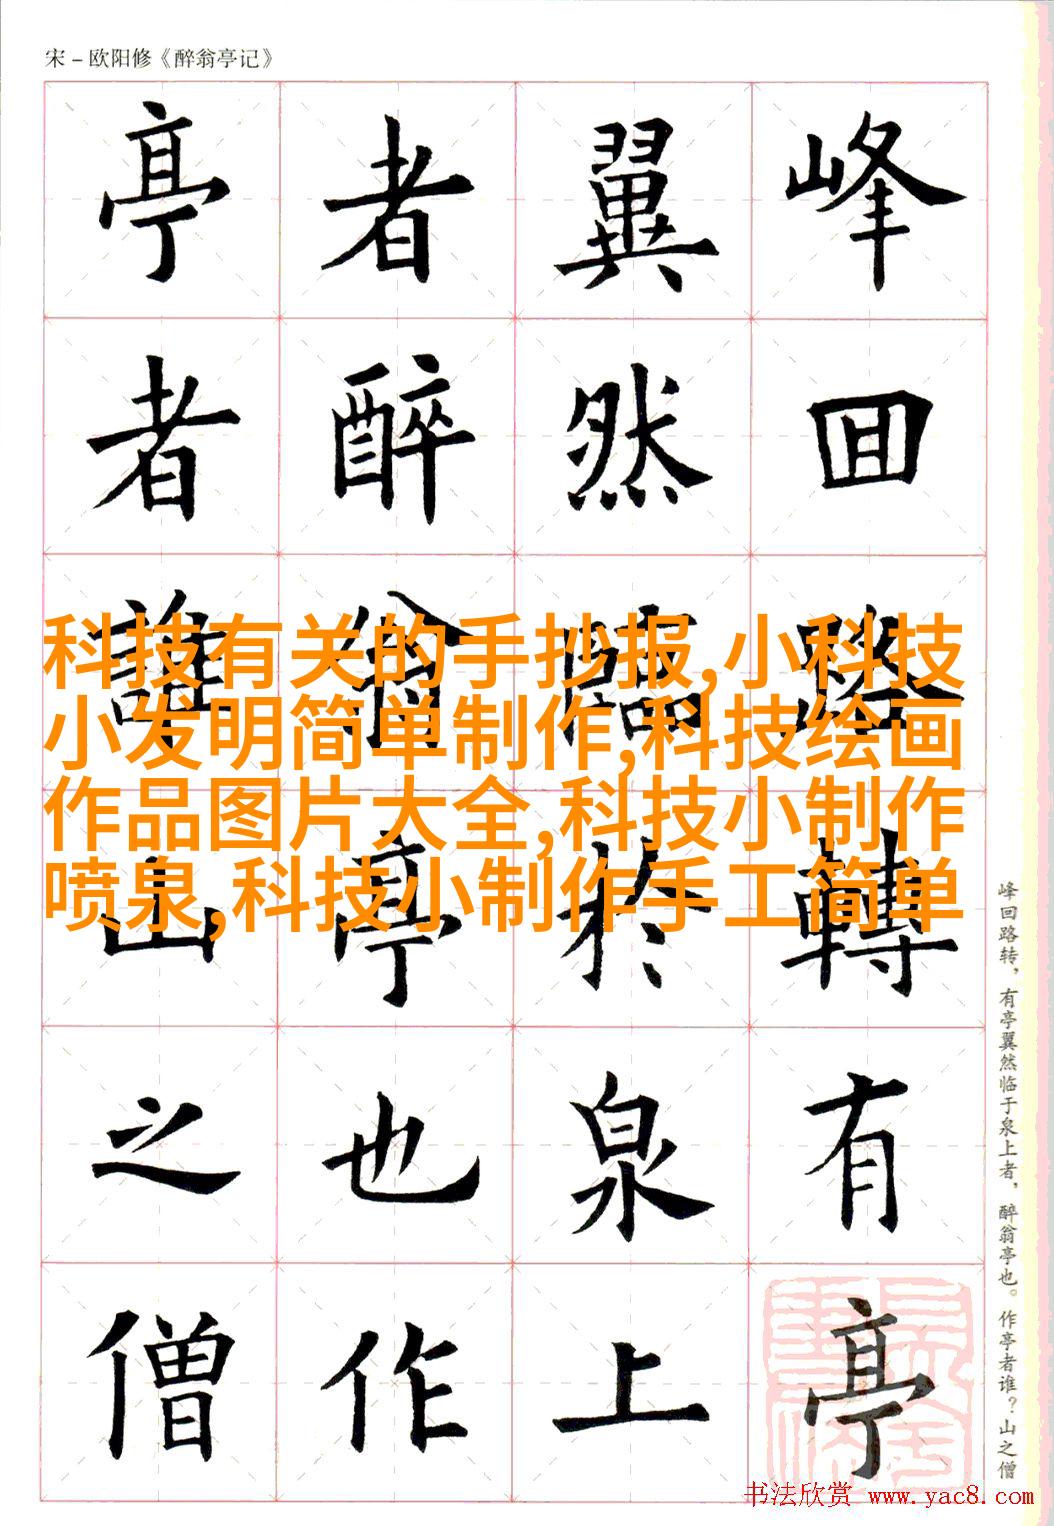 宋－欧阳修《醉翁亭记》
峰回路轉有亭
翼然臨於泉上
者醉翁亭也作
亭者誰山之僧
科技有关的手抄报,小科技
小发明简单制作,科技绘画
作品图片大全,科技小制作
喷泉,科技小制作手工简单
峰回路转，有亭翼然临于泉上者，醉翁亭也。作亭者谁？山之僧
书法欣赏 www.yac8.com